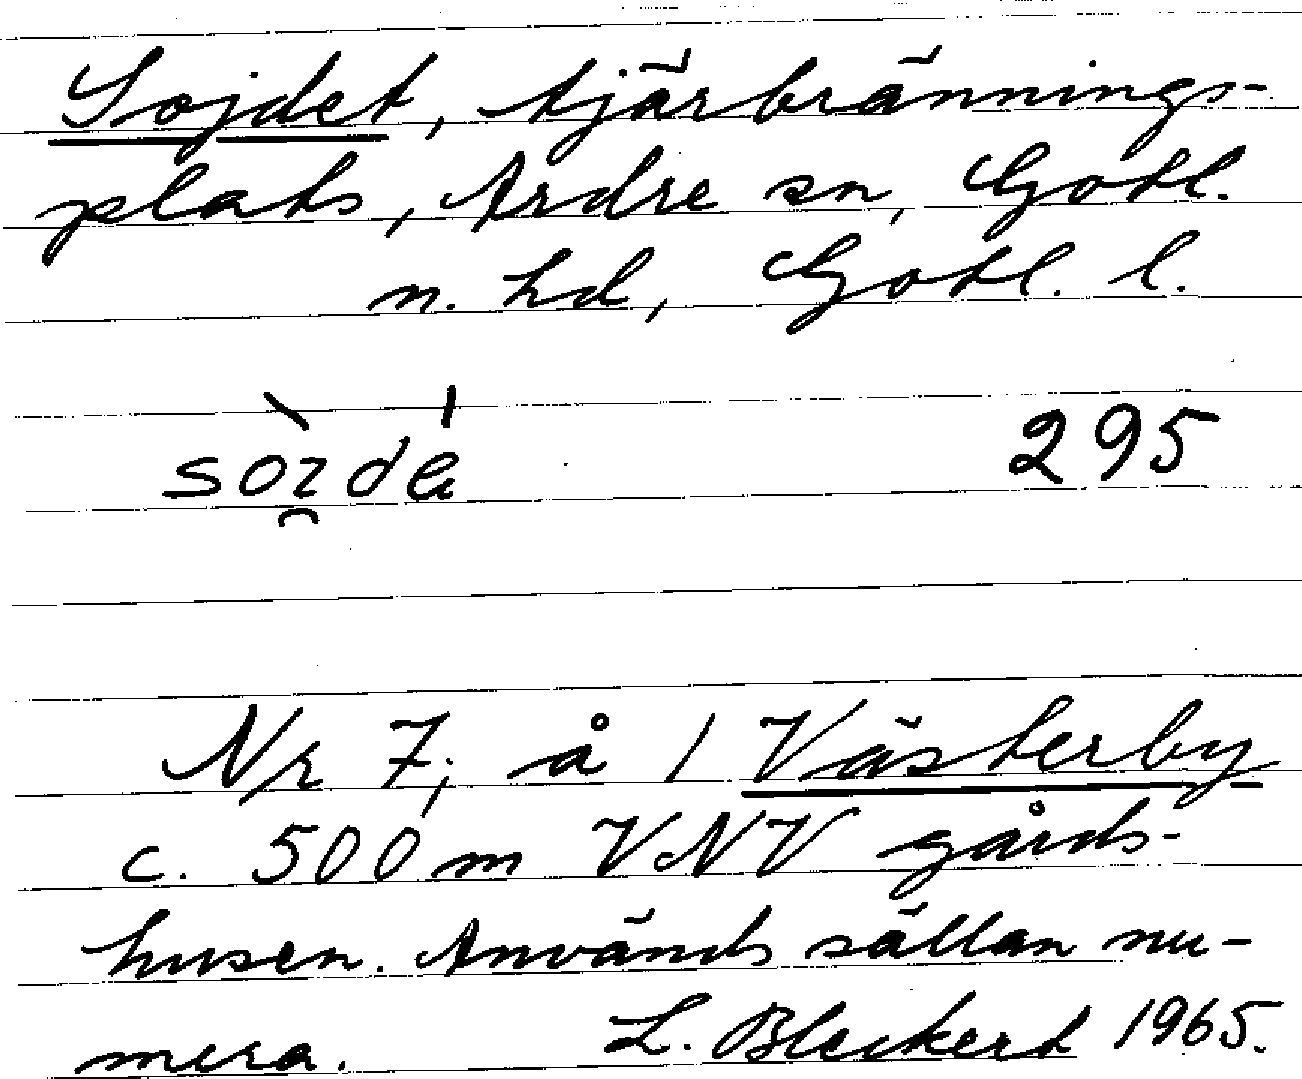 Sojdet, tjärbrännings-
plats, Ardre sn, Gotl.
n. hd, Gotl. l.
295
Nr 7, å 1 Västerby
c. 500 m VNV gårds-
husen. Används sällan nu-
mera. L. Bleckert 1965.